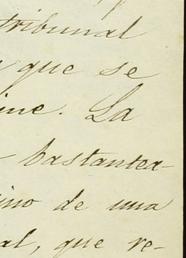 tribunal
que se
ime. La
bastantex-
ino de una
al, que re-